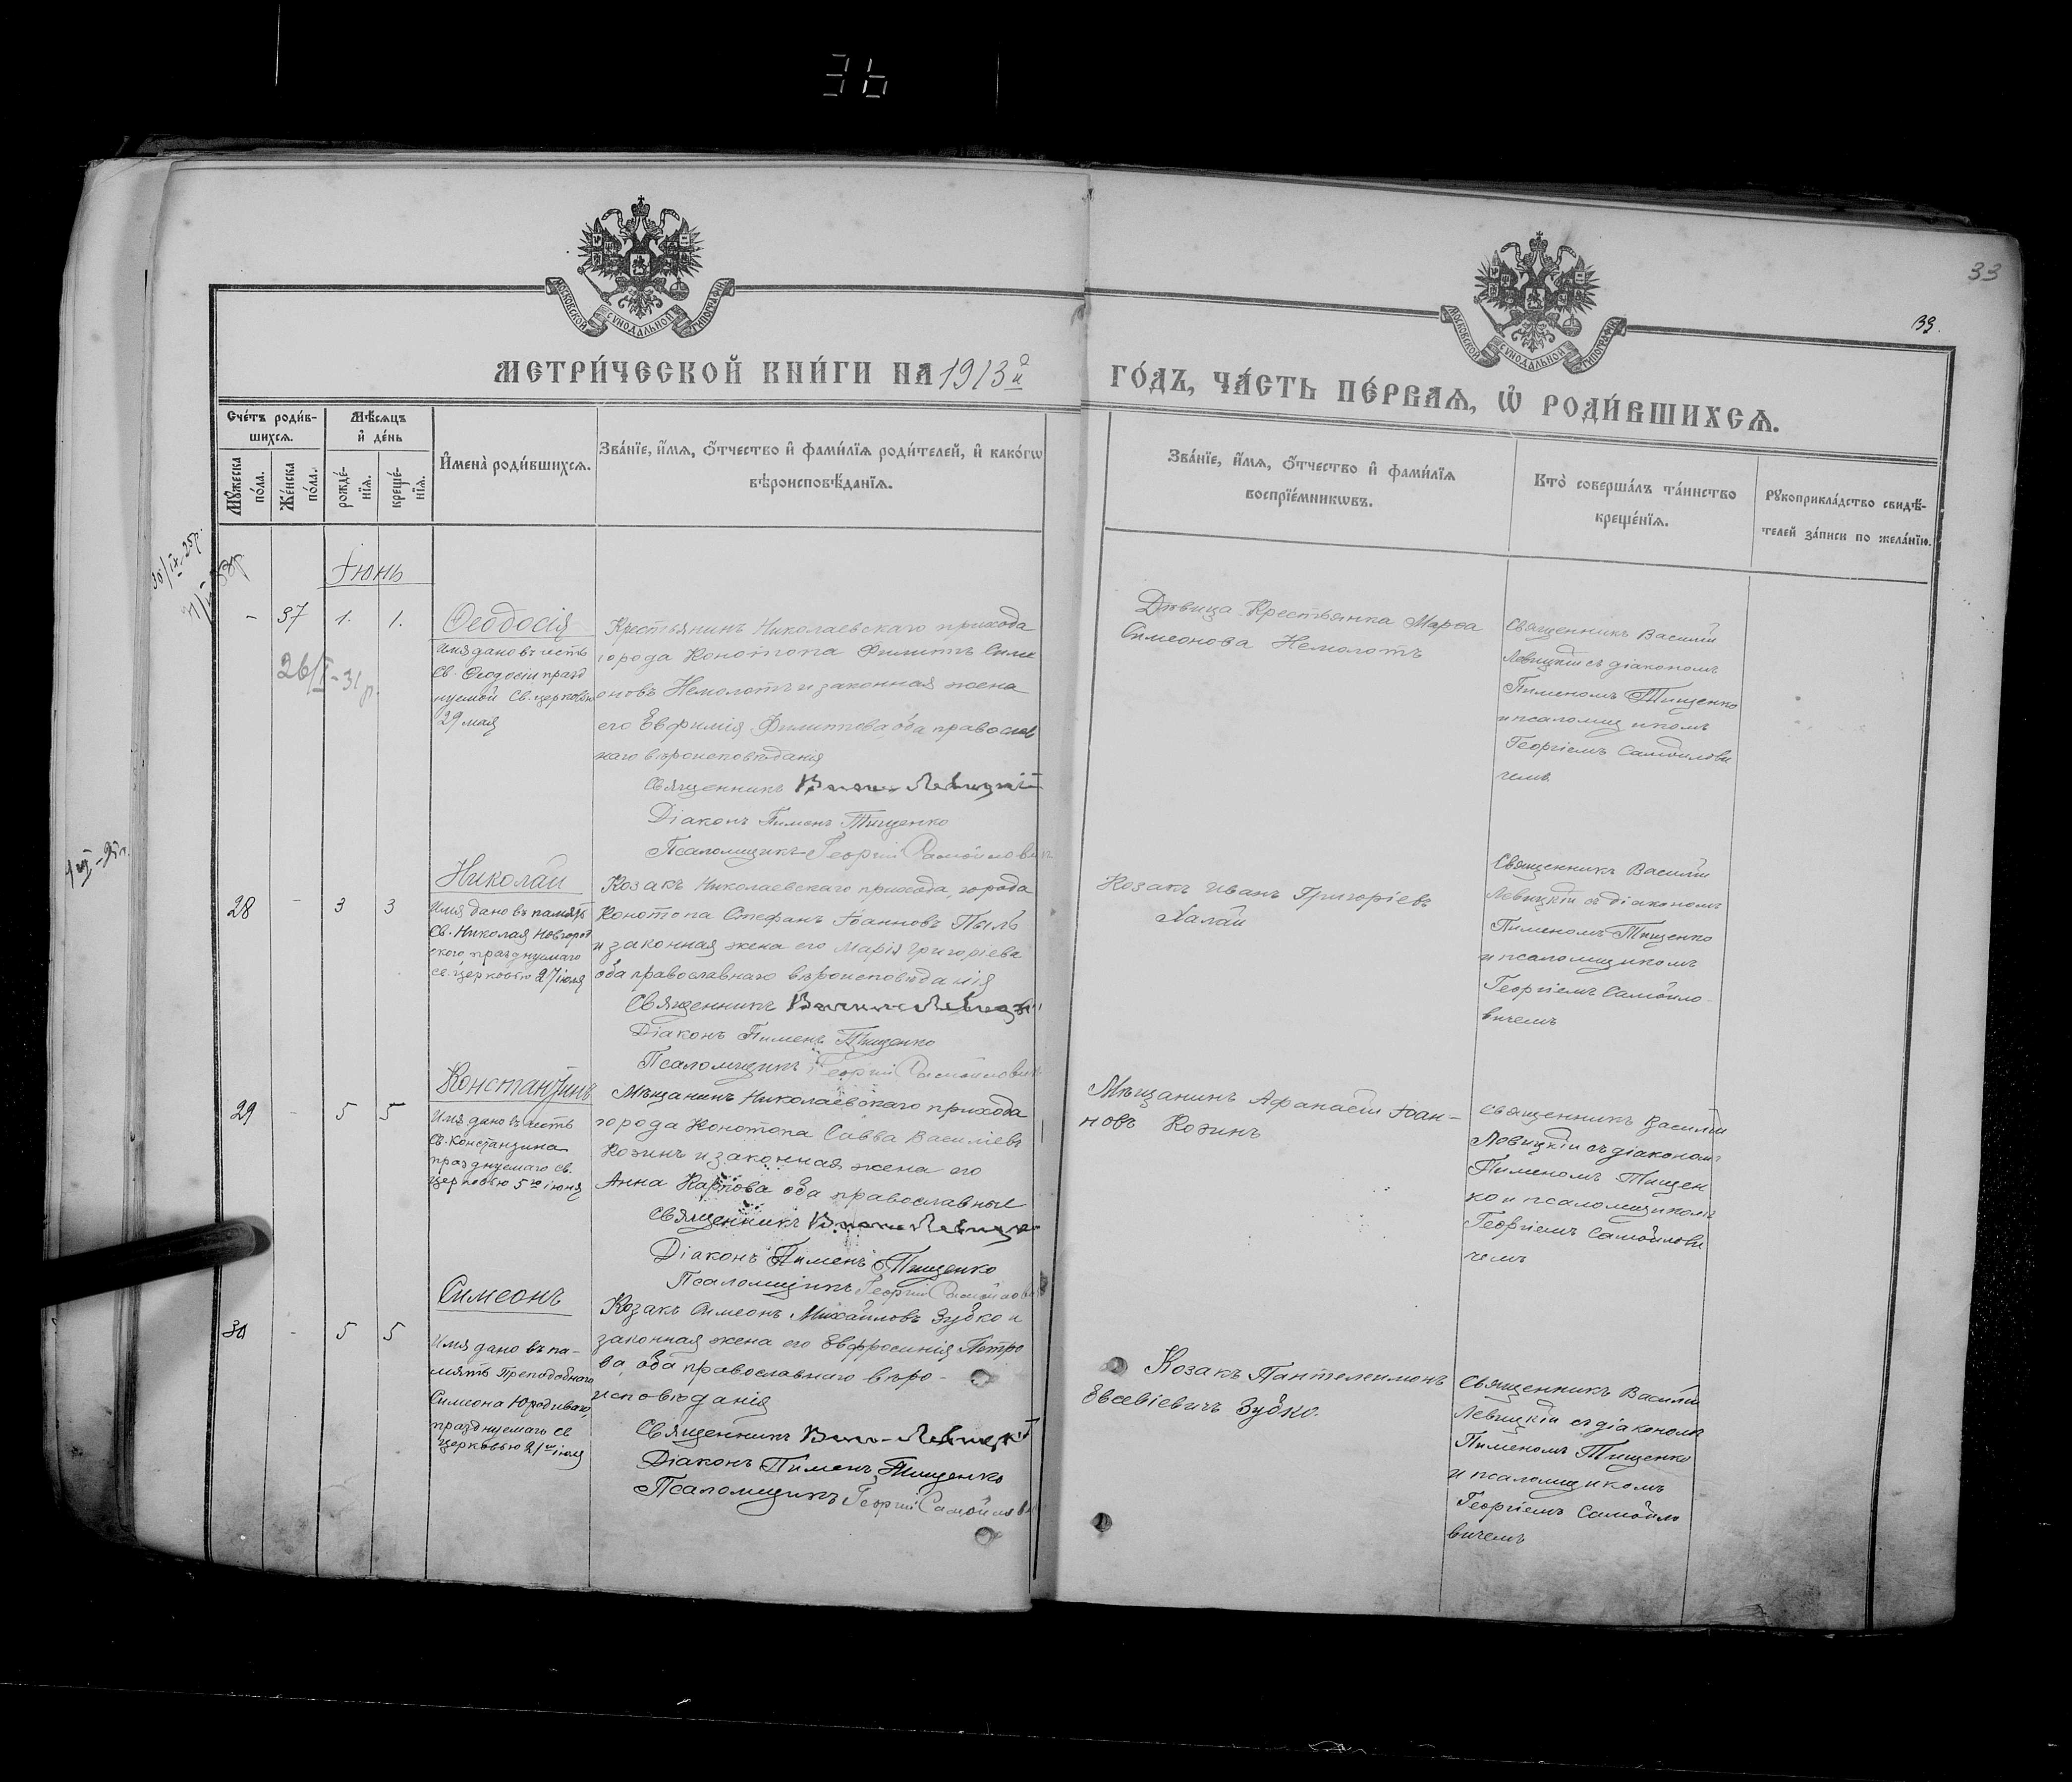 36
33
39.
МОСКОВСКОЙ СУНОДАЛЬНОЙ ТИПОГРАФІИ
МОСКОВСКОЙ СУНОДАЛЬНОЙ ТИПОГРАФІИ
МЕТРИ́ЧЕСКОЙ КНИ́ГИ НА 1913й
ГО́ДЪ, ЧА́СТЬ ПЕ́РВАѦ, Ѽ РОДИ́ВШИХСѦ.
Сче́тъ роди́в-
шихсѧ.
Мѣсѧцъ
и҆ де́нь
Мꙋ́жеска по́ла.
Же́нска по́ла.
рожде́-
нїѧ.
креще́-
нїѧ.
И҆мена̀ роди́вшихсѧ.
Зва́нїе, и҆́мѧ, ѻ҆́тчество и҆ фами́лїѧ роди́телей, и҆ како́гѡ
вѣроисповѣ́данїѧ.
Зва́нїе, и҆́мѧ, ѻ҆́тчество и҆ фами́лїѧ
воспрїе́мникѡвъ.
Кто̀ соверша́лъ та́инство
креще́нїѧ.
Рꙋкоприкла́дство свидѣ́-
телей за́писи по жела́нїю.
Іюнь
- 37 1. 1.
Ѳеодосія
Имя дано въ честь
Св. Ѳеодосіи празд
нуемой Св. церковью
29 мая
26/I-31 р.
Крестьянинъ Николаевскаго прихода
города Конотопа Филиппъ Симе
оновъ Немолотъ и законная жена
его Евфимія Филиппева, оба православ
наго вѣроисповѣданія
Священникъ Василій Левицкій
Діаконъ Пименъ Тищенко
Псаломщикъ Георгій Самойлович
Дѣвица Крестьянка Марѳа
Симеонова Немолотъ
Священникъ Василій
Левицкій съ діакономъ
Пименомъ Тищенко
и псаломщикомъ
Георгіемъ Самойлови
чемъ
28 - 3 3
Николай
Имя дано въ память
Св. Николая Новгород
скаго, празднуемаго
св. церковью 27 іюля
Козакъ Николаевскаго прихода, города
Конотопа Стефанъ Іоанновъ Пыль
и законная жена его Марія Григоріева
оба православнаго вѣроисповѣданія
Священникъ Василій Левицкій
Діаконъ Пименъ Тищенко
Псаломщикъ Георгій Самойлович
Козакъ Иванъ Григоріевъ
Халай
Священникъ Василій
Левицкій съ діакономъ
Пименомъ Тищенко
и псаломщикомъ
Георгіемъ Самойло-
вичемъ
29 - 5 5
Константинъ
Имя дано въ честь
Св. Константина
празднуемаго св.
церковью 5го іюня
Мѣщанинъ Николаевскаго прихода
города Конотопа Савва Василіевъ
Козинъ и законная жена его
Анна Карпова оба православные
Священникъ Василій Левицкій
Діаконъ Пименъ Тищенко
Псаломщикъ Георгій Самойлович
Мѣщанинъ Афанасій Іоан-
новъ Козинъ
Священникъ Василій
Левицкій съ діакономъ
Пименомъ Тищен
ко и псаломщикомъ
Георгіемъ Самойлови
чемъ
30 - 5 5
Симеонъ
Имя дано въ па-
мять Преподобнаго
Симеона Юродиваго,
празднуемаго св
церковью 21го іюля
Козакъ Симеонъ Михайловъ Зубко и
законная жена его Евфросинія Петро
ва, оба православнаго вѣро-
исповѣданія
Священникъ Василій Левицкій
Діаконъ Пименъ Тищенко
Псаломщикъ Георгій Самойлович
Козакъ Пантелеимонъ
Евсевіевичъ Зубко.
Священникъ Василій
Левицкій съ діакономъ
Пименомъ Тищенко
и псаломщикомъ
Георгіемъ Самойло
вичемъ